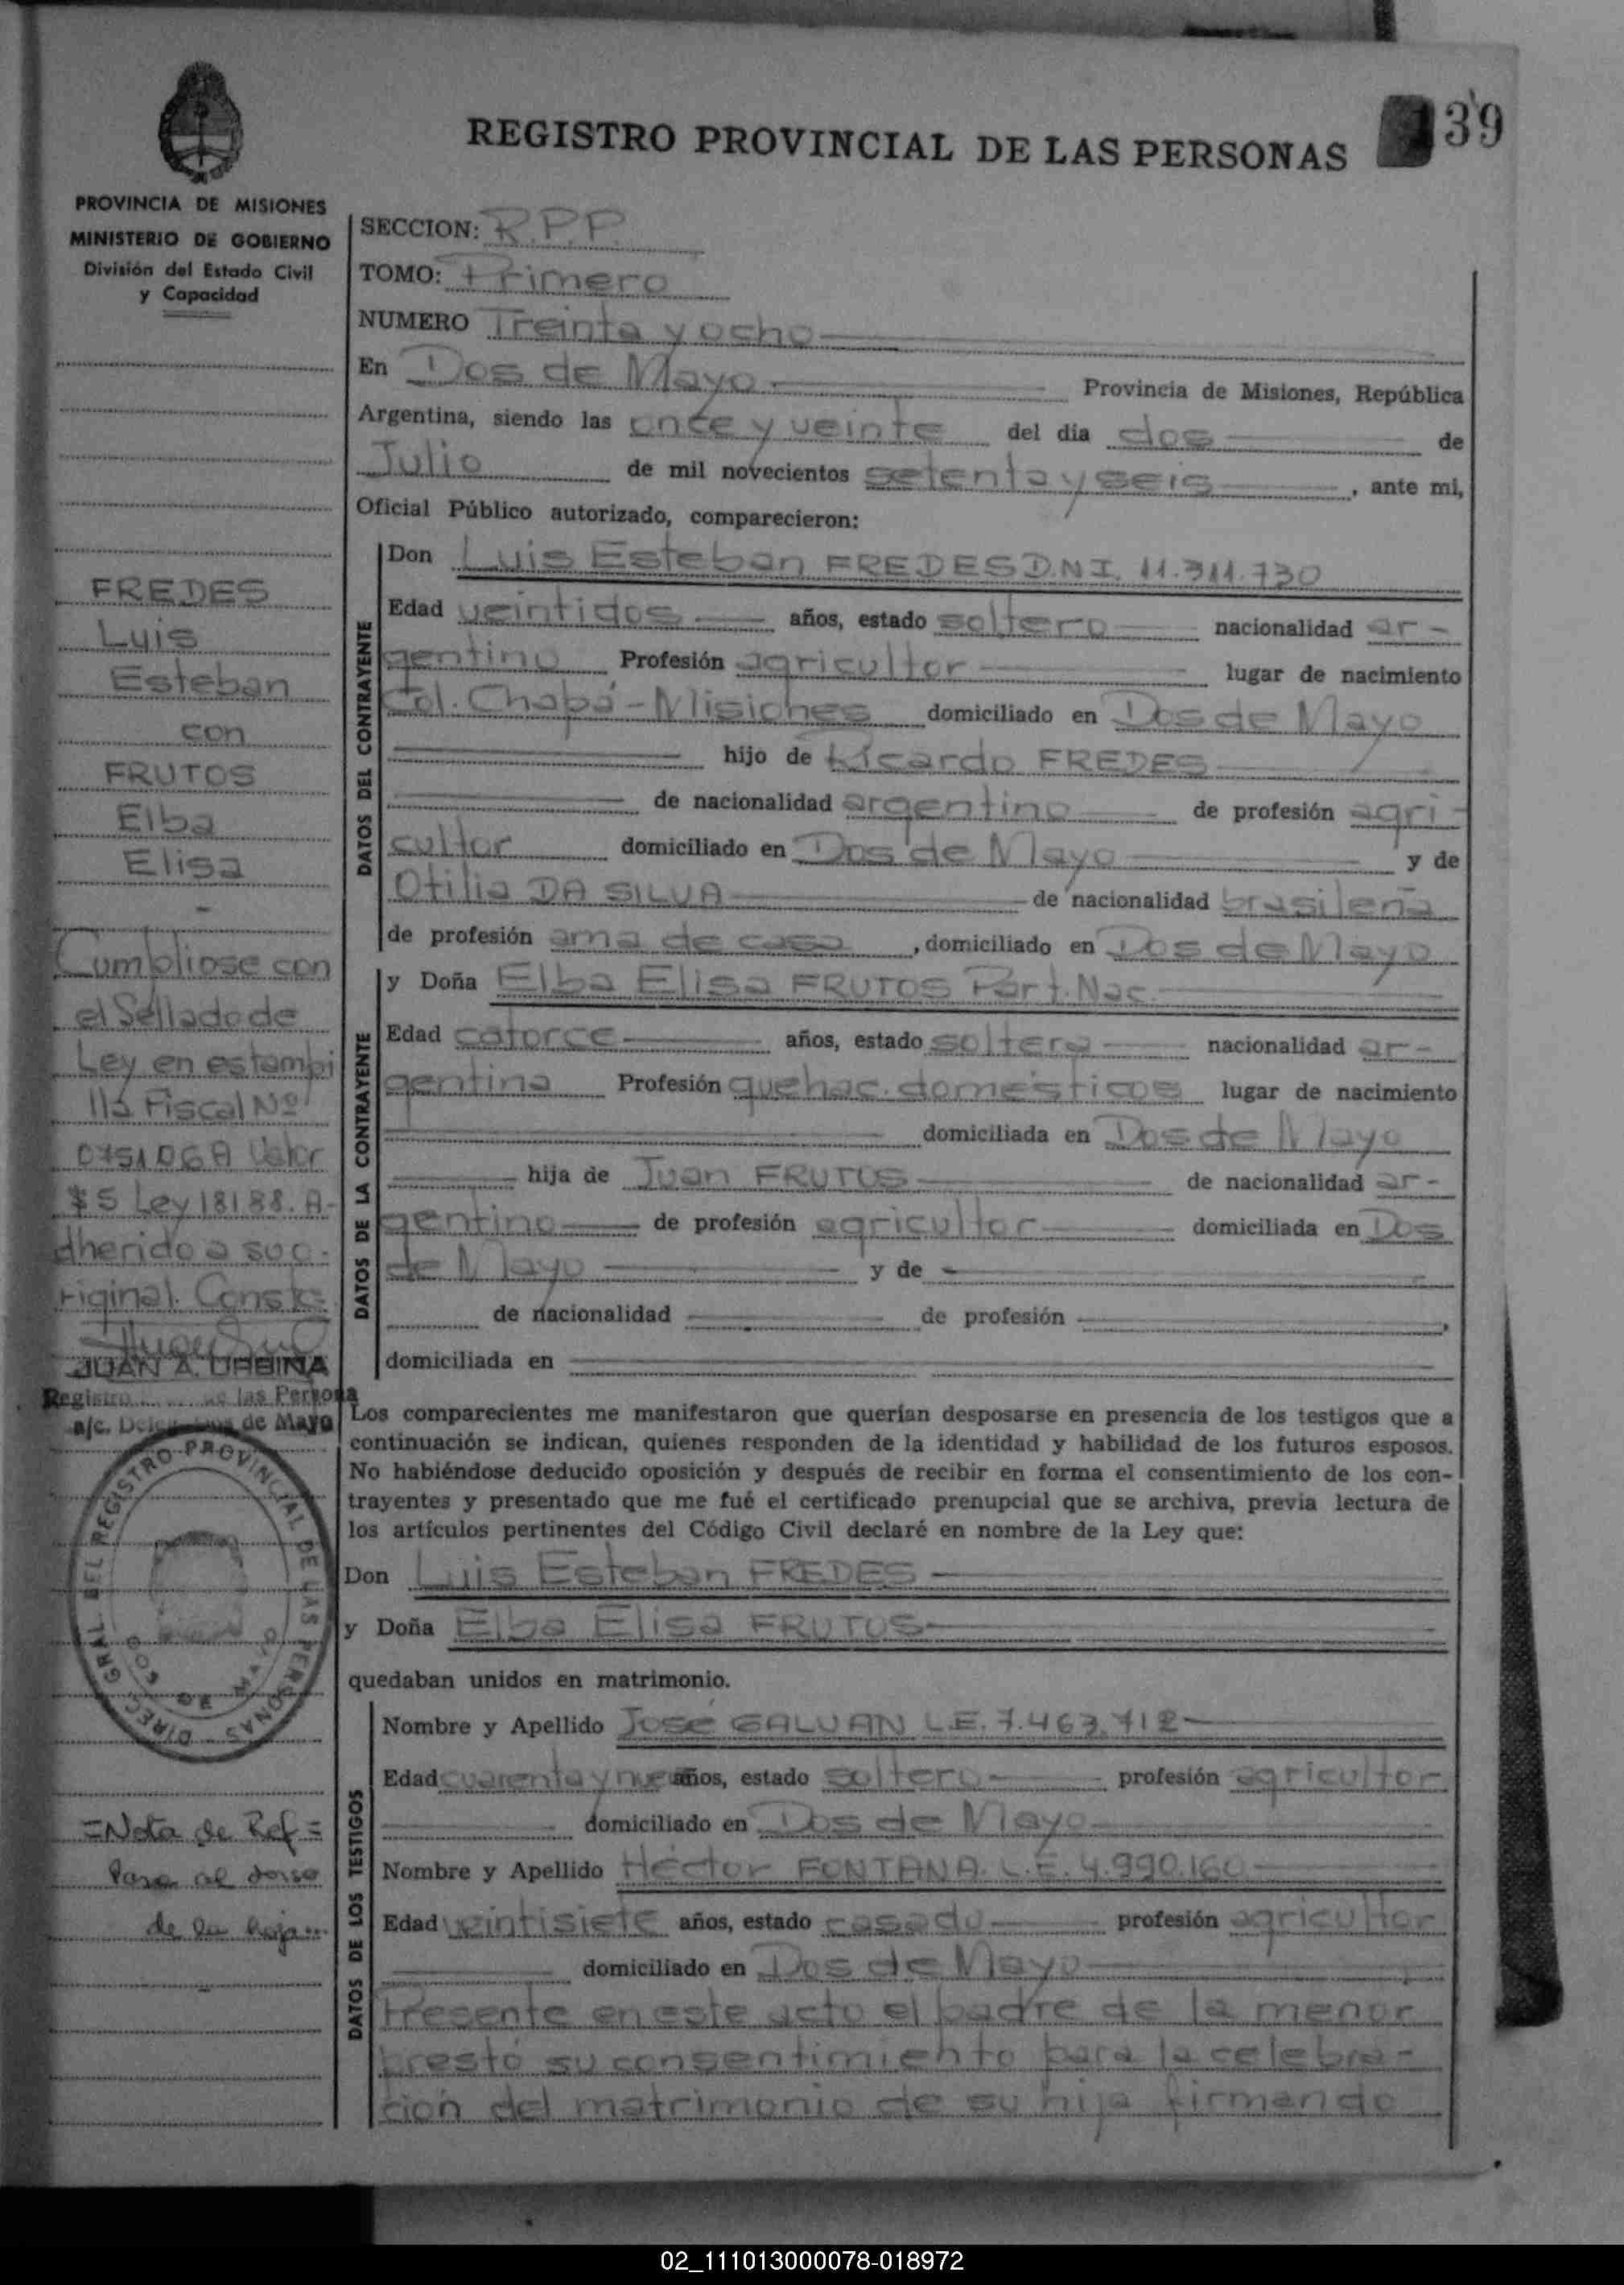 39
REGISTRO PROVINCIAL DE LAS PERSONAS
PROVINCIA DE MISIONES
MINISTERIO DE GOBIERNO
División del Estado Civil
y Capacidad
SECCION: R.P.P.
TOMO: Primero
NUMERO Treinta y ocho
En Dos de Mayo. Provincia de Misiones, República
Argentina, siendo las once y veinte del dia dos de
Julio de mil novecientos setenta y seis, ante mi,
Oficial Público autorizado, comparecieron:
DATOS DEL CONTRAYENTE
Don Luis Esteban FREDES D.N.I. 11.311.730
Edad veintidos años, estado soltero nacionalidad ar-
gentino Profesión agricultor lugar de nacimiento
Col. Chapá - Misiones domiciliado en Dos de Mayo
hijo de Ricardo FREDES
de nacionalidad argentino de profesión agri-
cultor domiciliado en Dos de Mayo y de
Otilia DA SILVA de nacionalidad brasileña
de profesión ama de casa, domiciliado en Dos de Mayo
DATOS DE LA CONTRAYENTE
y Doña Elba Elisa FRUTOS Part. Nac.
Edad catorce años, estado soltera nacionalidad ar-
gentina Profesión quehac. domésticos lugar de nacimiento
domiciliada en Dos de Mayo
hija de Juan FRUTOS de nacionalidad ar-
gentino de profesión agricultor domiciliada en Dos
de Mayo y de
de nacionalidad de profesión ,
domiciliada en
Los comparecientes me manifestaron que querían desposarse en presencia de los testigos que a
continuación se indican, quienes responden de la identidad y habilidad de los futuros esposos.
No habiéndose deducido oposición y después de recibir en forma el consentimiento de los con-
trayentes y presentado que me fué el certificado prenupcial que se archiva, previa lectura de
los artículos pertinentes del Código Civil declaré en nombre de la Ley que:
Don Luis Esteban FREDES
y Doña Elba Elisa FRUTOS
quedaban unidos en matrimonio.
DATOS DE LOS TESTIGOS
Nombre y Apellido José GALVAN L.E. 7.463.712
Edad cuarenta y nueve años, estado soltero profesión agricultor
domiciliado en Dos de Mayo
Nombre y Apellido Héctor FONTANA. L.E. 4.990.160
Edad veintisiete años, estado casado profesión agricultor
domiciliado en Dos de Mayo
Presente en este acto el padre de la menor
presto su consentimiento para la celebra-
ción del matrimonio de su hija firmando
FREDES
Luis
Esteban
con
FRUTOS
Elba
Elisa
Cumpliose con
el Sellado de
Ley en estampi
lla Fiscal Nº
0751068 Valor
$5 Ley 18188. A-
dherido a su o-
riginal. Conste
JUAN A. URBINA
Registro de las Persona
a/c. de Mayo
DIREC. GRAL. DEL REGISTRO PROVINCIAL DE LAS PERSONAS
DOS DE MAYO
=Nota de Ref=
Pasa al dorso
de la hoja...
02_111013000078-018972